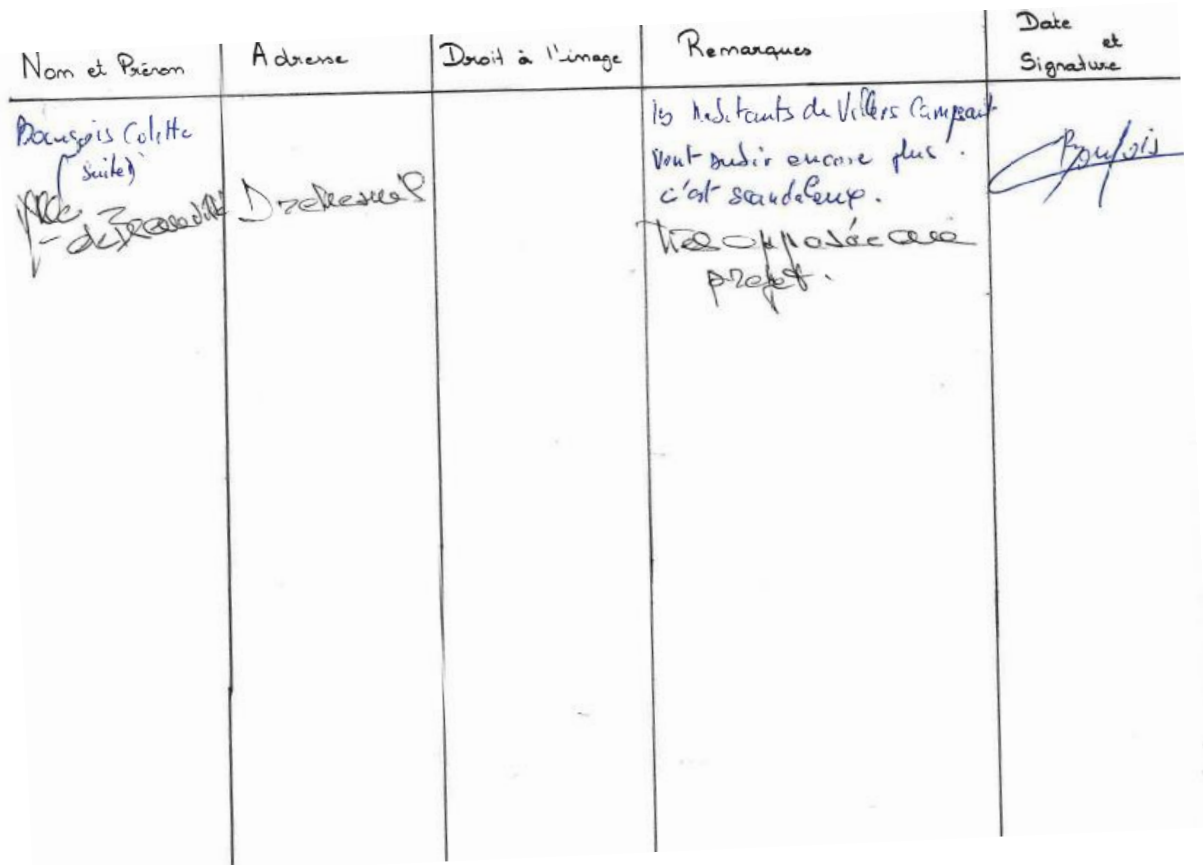 Nom et Prénom
Adresse
Droit à l'image
Remarques
Date et
Signature
Colette
(suite)
les habitants de Villers Campsart
vont subir encore plus.
c'est scandaleux.
Très opposée au
projet.